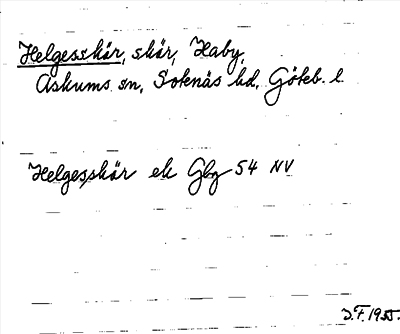 Helgesskär, skär, Haby,
Askums sn, Sotenäs hd, Göteb. l.
Helgesskär ek Gbg 54 NV
D.F. 1955.